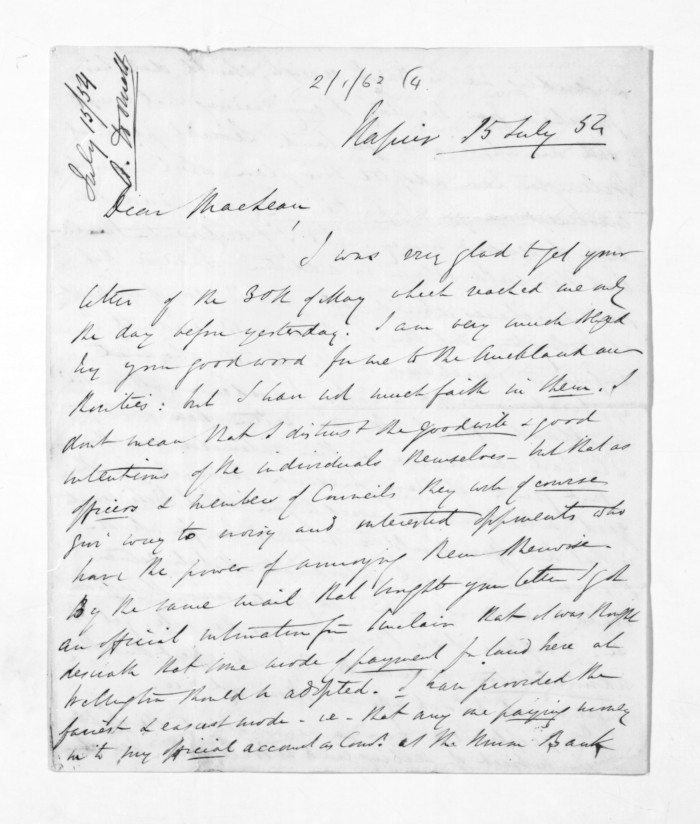 July 15/54
A. Domett
2/1/63 (4.
Napier 15 July 54
Dear MacLean,
I was very glad to get your
letter of the 30th of May which reached me only
the day before yesterday. I am very much obliged
by your good word for me to the Auckland au-
thorities: but I have not much faith in them. I
dont mean that I distrust the goodwill & good
intentions of the individuals themselves - but that as
officers & members of Councils they will of course
give way to noisy and interested opponents who
have the power of annoying them otherwise
By the same mail that brought your letter I got
an official intimation from Sinclair that it was thought
desirable that some mode of payment for land here at
Wellington should be adopted. - I have provided the
fairest & easiest mode - ie - that any one paying money
in to my official account as Comr. at the Union Bank